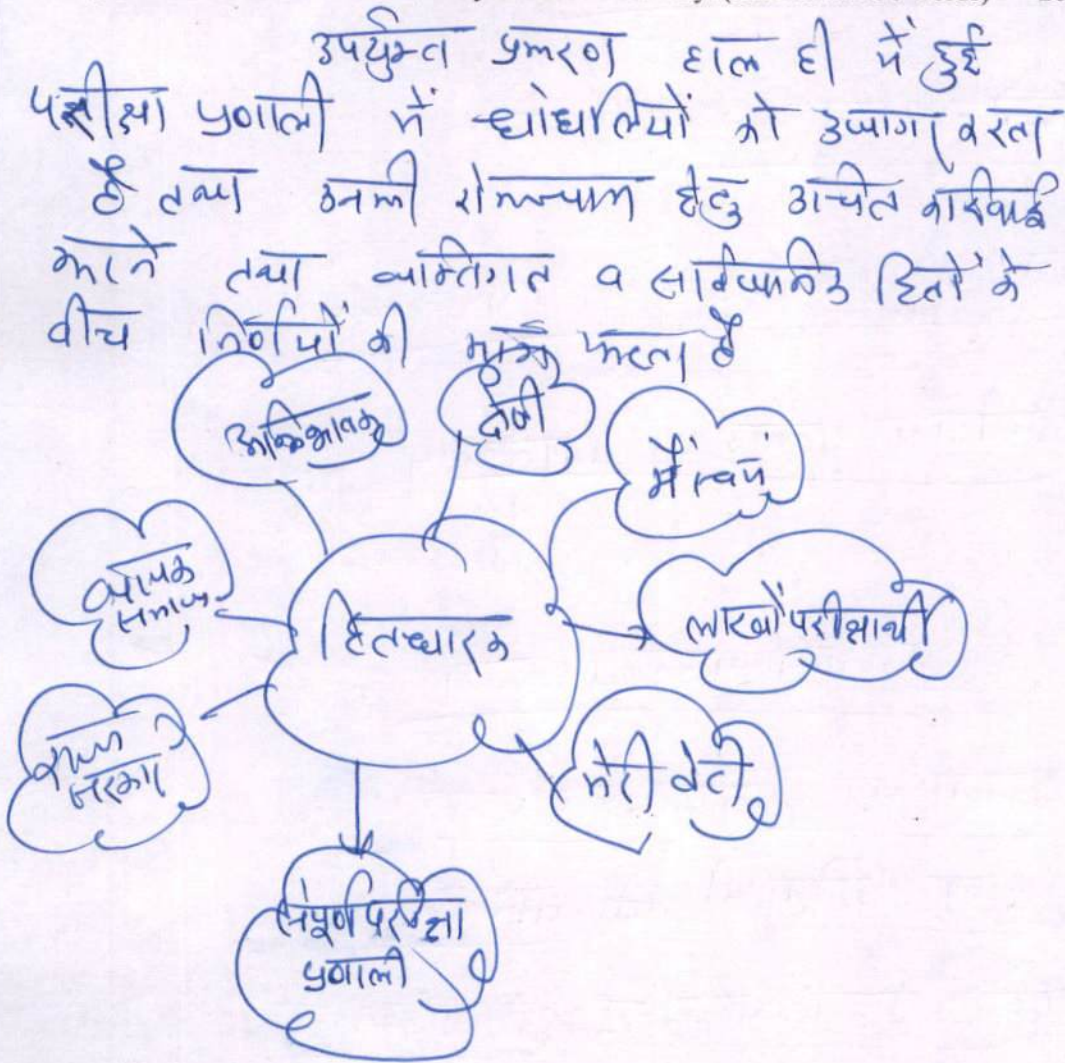 उपर्युक्त प्रकरण हाल ही में हुई
परीक्षा प्रणाली में धांधलियों को उजागर करता
है तथा उनकी रोकथाम हेतु उचित कार्रवाई
करने तथा व्यक्तिगत व सार्वजनिक हितों के
बीच निर्णयों की मांग करता है
अभिभावक
दोषी
मैं स्वयं
व्यापक
समाज
हितधारक
लाखों परीक्षार्थी
राज्य
सरकार
मेरी बेटी
संपूर्ण परीक्षा
प्रणाली